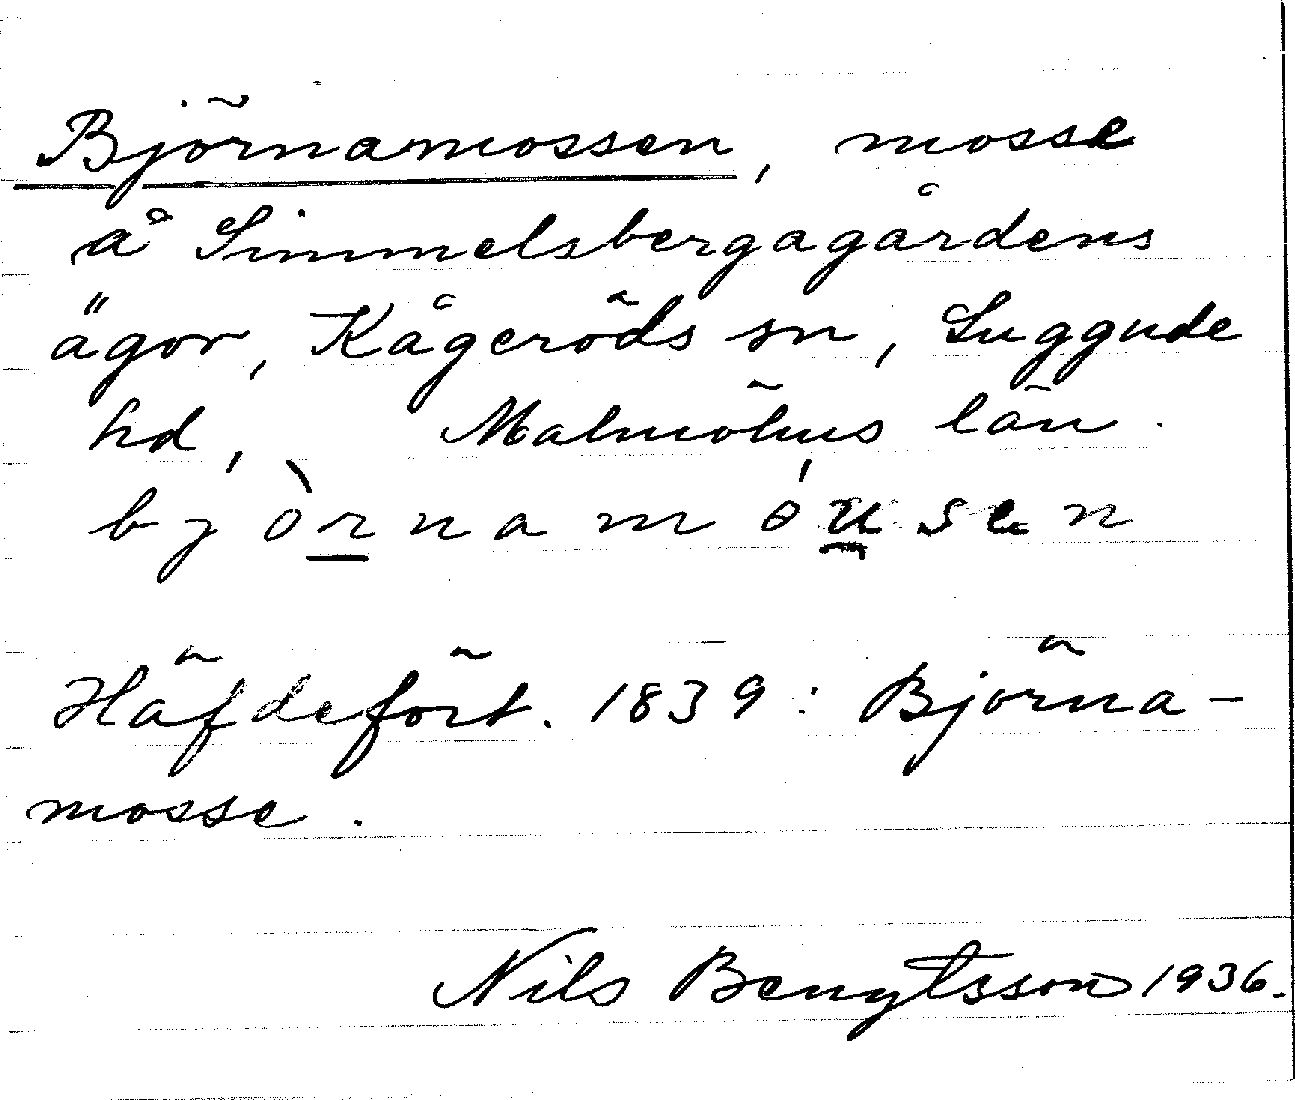 Björnamossen, mosse
å Simmelsbergagårdens
ägor, Kågeröds sn, Luggude
hd, Malmöhus län.
bjòrnamóusen
Häfdefört. 1839: Björna-
mosse.
Nils Bengtsson 1936.